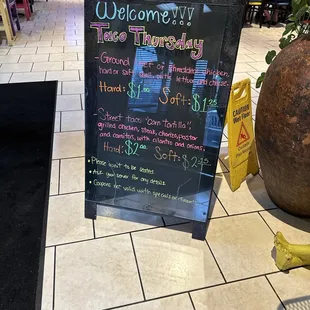 Welcome!!!
Taco Thursday
- Ground beef or shredded chicken,
hard or soft with lettuce and cheese.
Hard: $1 Soft: $1.35
- Street taco "corn tortilla",
grilled chicken, steak, chorizo, pastor
and carnitas, with cilantro and onions,
Hard: $2.00 Soft: $2.35
• Please wait to be seated
• Ask your server for any details
• Coupons not valid with specials or
CAUTION